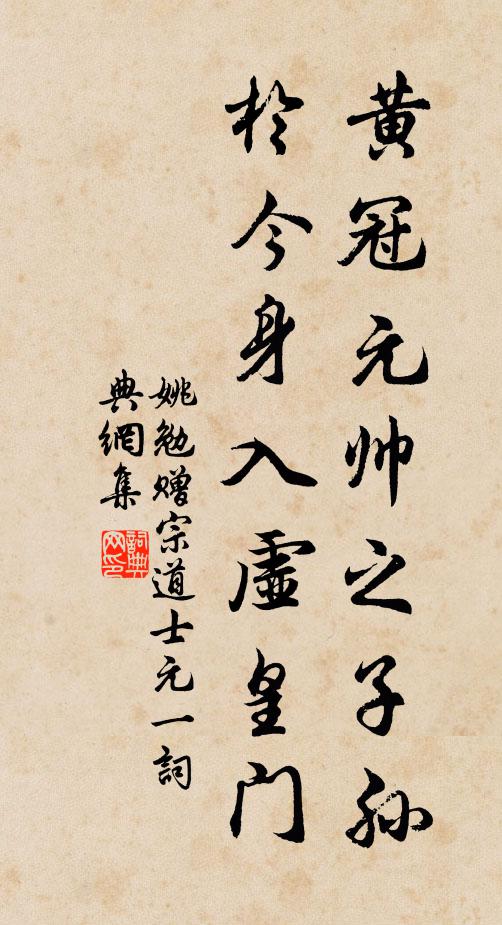 黄冠元帅之子孙
於今身入虛皇门
姚勉赠宗道士元一詞
典網集
詞典网印